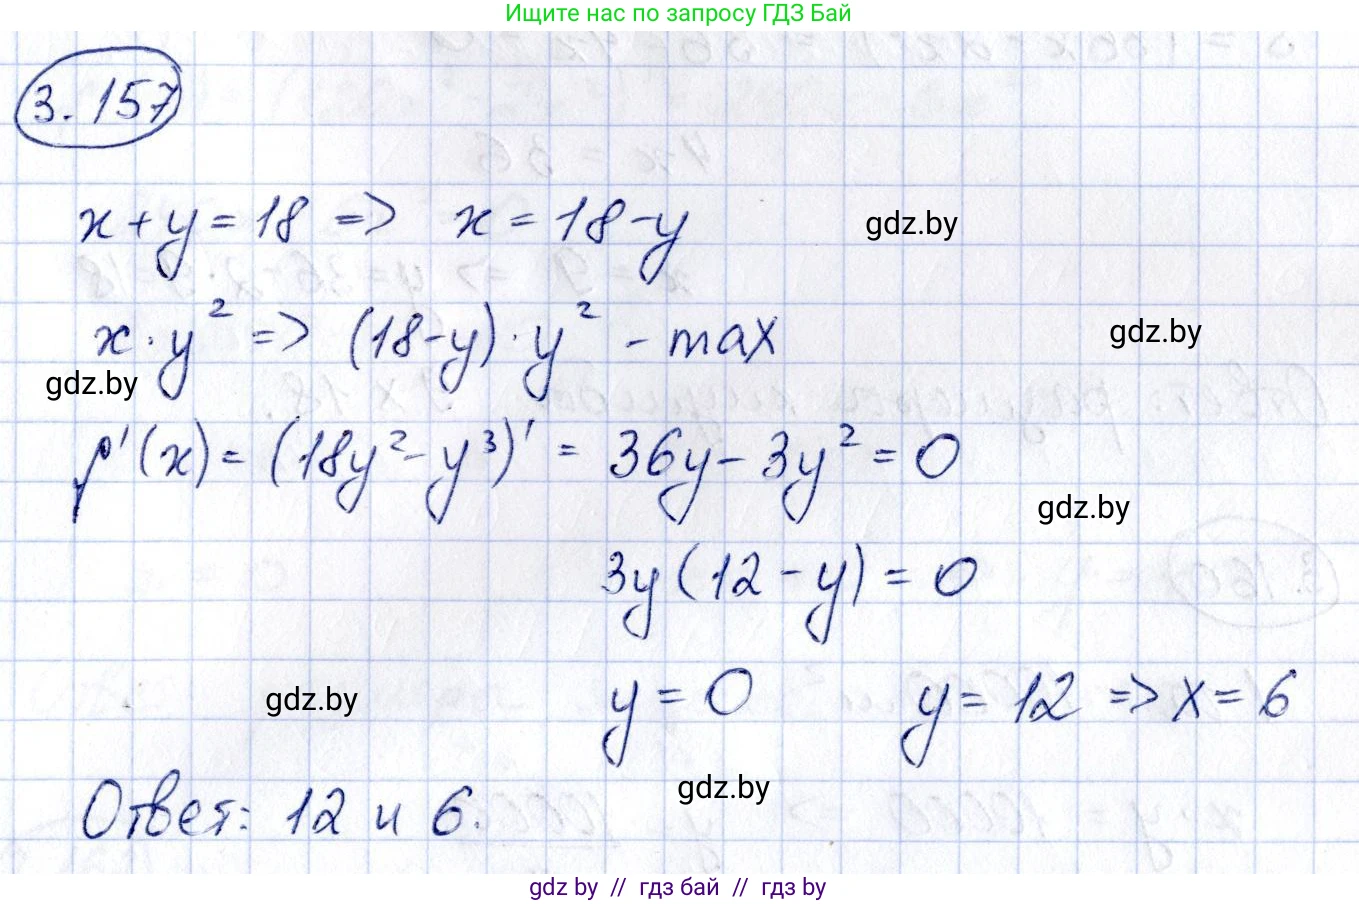 Ищите нас по запросу ГДЗ Бай
3.157
x+y=18 => x=18-y
gdz.by
x·y² => (18-y)·y² - max
gdz.by
gdz.by
f'(x)=(18y²-y³)' = 36y-3y²=0
gdz.by
3y(12-y)=0
gdz.by
y=0 y=12 => x=6
gdz.by
Ответ: 12 и 6.
gdz by // гдз бай // гдз by